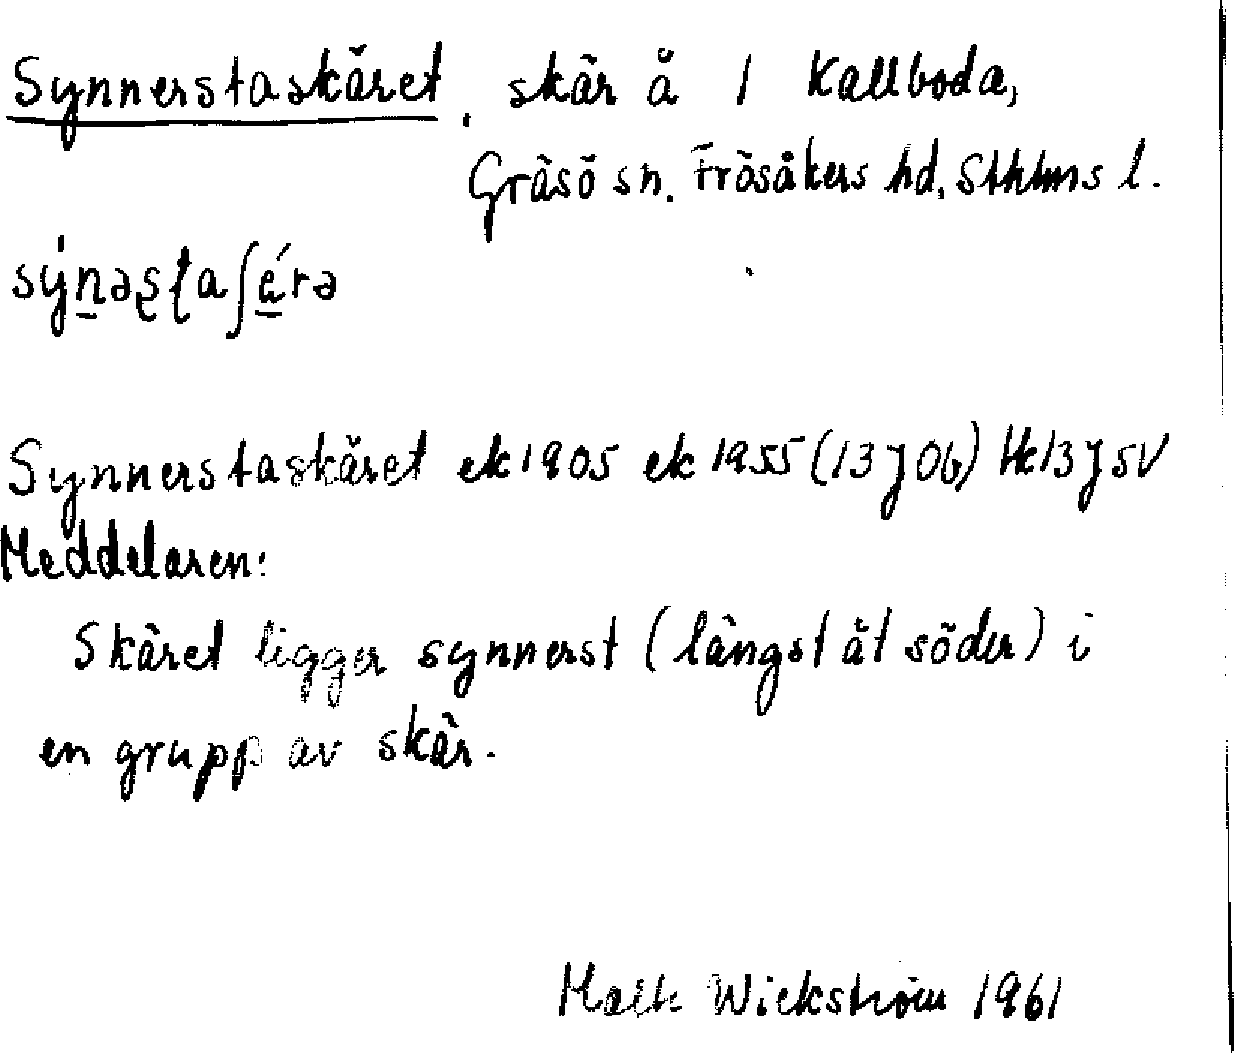 Synnerstaskäret. skär å 1 Kallboda,
Gräsö sn. Frösåkers hd, Sthlms l.
Synnerstaskäret ek 1905 ek 1955 (13 J 06) Hc 13 J SV
Meddelaren:
Skäret ligger synnerst (längst åt söder) i
en grupp av skär.
Wickström 1961